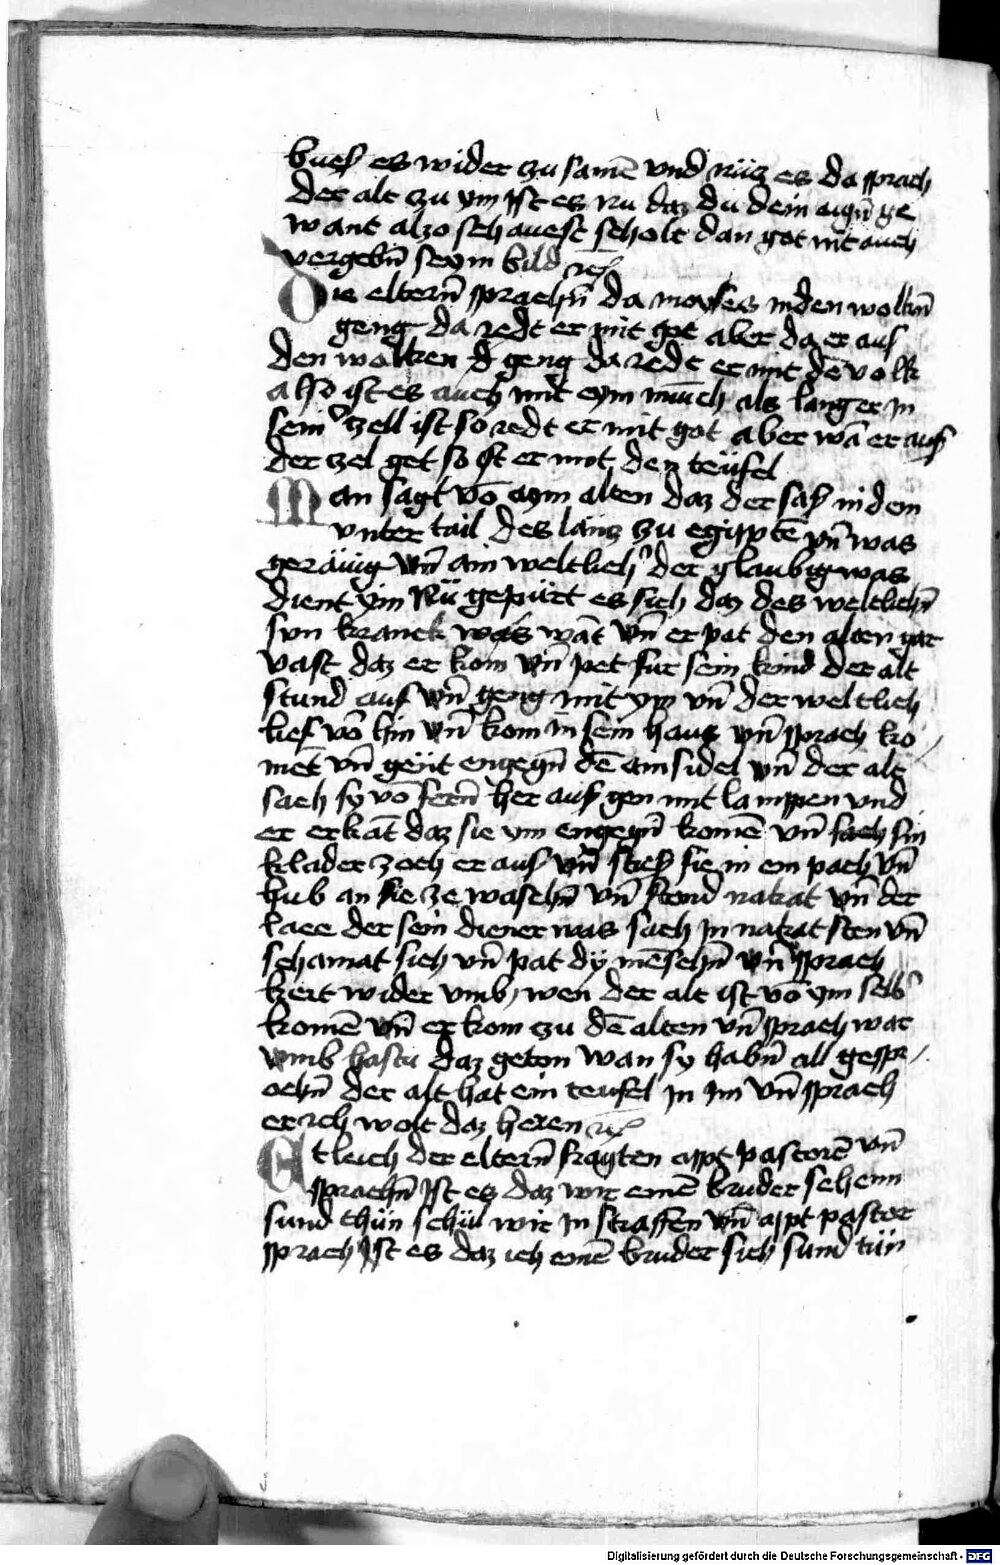 bues es wider zu samē vnd nücz es da sprach
der alt zu ym Ist es nu daz du dein aigñ ge
want alzo schauest scholt dan got nit auch
vergebñ seym bild
Die elterñ sprachñ da moyses in den wolkñ
geng da redt er mit got aber da er aus
den wolken geng da redt er mit dē volk
also ist es auch mit eym münch als lang er in
sein' zell ist so redt er mit got aber wā er aus
der zel get so ist er mit den teüfel
Man sagt vō aym alten daz der sas in dem
vnter tail des lancz zu egiptē vñ was
geräuig vñ ain weltlich' der glaubig was
dient ym Nü gepürt es sich daz des weltlichñ
sun kranck was wāt vñ er pat den alten gar
vast daz er kom vñ pet fur sein kind der alt
stund auf vñ geng mit ym vñ der weltlich
lief vō hin vñ kom in sein haus vñ sprach ko
mēt vñ geüt engegñ dē ainsidel vñ der alt
sach sy vō ferñ her aus gen mit lampen vnd
er erkāt daz sie ym engegñ komē vñ sach sin
klader zoch er aus vñ sties sie in ein pach vñ
hub an sie ze waschñ vñ stond nakat vñ der
laee der sein diener was sach In nakat sten vñ
schamat sich vñ pat dy mēschñ vñ sprach
kert wider vmb wen der alt ist vō ym selb'
komē vñ er kom zu dē alten vñ sprach war
vmb hastu daz geton wan sy habñ all gespr
ochñ der alt hat ein teufel In im vñ sprach
er ich wolt daz heren
Etleich der elterñ fragten appt pastorē vñ
sprachñ Ist es daz wir einē bruder sehenn
sund thün schüll wir In straffen vñ appt pastor
sprach Ist es daz ich einē bruder sich sund tün
Digitalisierung gefördert durch die Deutsche Forschungsgemeinschaft - DFG